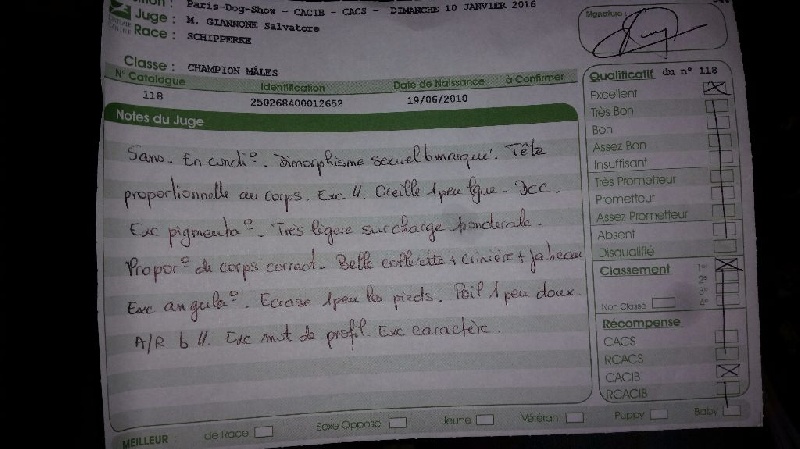 Paris Dog-Show - CACIB - CACS - DIMANCHE 10 JANVIER 2016
Juge : M. GIANNONE Salvatore
Race : SCHIPPERKE
Signature :
Classe : CHAMPION MÂLES
N° Catalogue Identification Date de Naissance à Confirmer
118 250268400012652 19/06/2010
Notes du Juge
5ans. En condi°. Dimorphisme sexuel b marqué. Tête
proportionnelle au corps. Exc //. Oreille 1 peu lgue.
Exc pigmenta°. Très légère surcharge pondérale.
Propor° de corps correct. Belle collerette + crinière +
Exc angula°. Ecrase 1 peu les pieds. Poil 1 peu doux.
A/R b //. Exc mvt de profil. Exc caractère.
Qualificatif du n° 118
Excellent
Très Bon
Bon
Assez Bon
Insuffisant
Très Prometteur
Prometteur
Assez Prometteur
Absent
Disqualifié
Classement
Non Classé
Récompense
CACS
RCACS
CACIB
RCACIB
MEILLEUR de Race Sexe Opposé Jeune Vétéran Puppy Baby